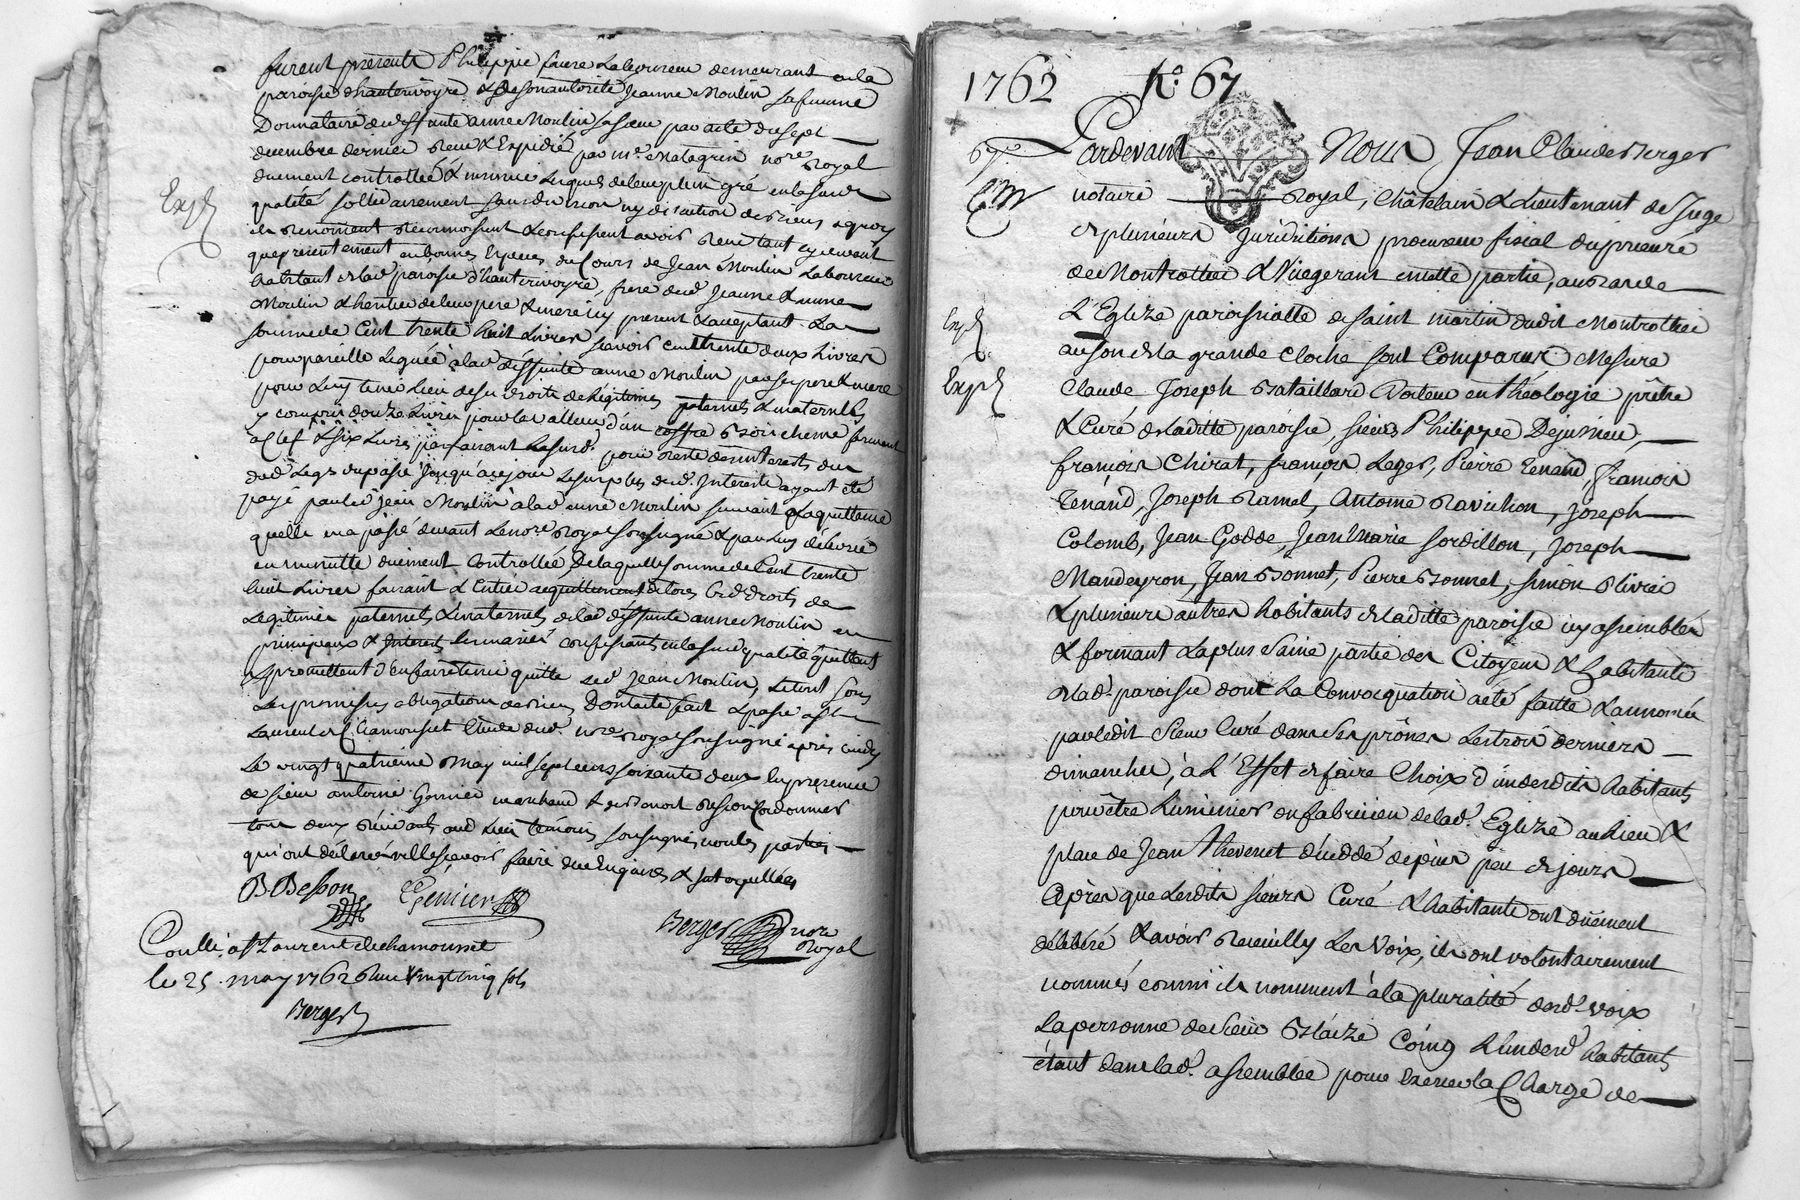 furent présents Philippe faure Laboureur demeurant en la
paroisse d'hauterivoyre & de son autorité Jeanne Moulin sa femme
Donnataire de deffunte anne Moulin sa sœur par acte du sept
decembre dernier Receu & Expedié par Me. Matagrin nore. Royal
duement controllé & insinué Lesquels de leur plein gré en la susd.
qualité sollidairement sans division ny discution de biens a quoy
ils Renoncent Reconnoissent & confessent avoir Receu tant cy devant
que présentement en bonnes Especes du Cours de Jean Moulin Laboureur
habitant de lad. paroisse d'hauterivoyre, frere desd. Jeanne & anne
Moulin & heritier de leur pere & mere icy present & acceptant La
somme de Cent trente huit Livres scavoir cent trente deux Livres
pour pareille Leguée à lad. deffunte anne Moulin par ses pere & mere
pour Luy tenir Lieu de ses droits de Légitimes paternels & maternels
y compris douze Livres pour la valleur d'un coffre bois chene fermant
a Clef & six Livres parfaisant Lesurd. pour reste des interests du
dud. Legs du passé jusqu'à ce jour Le surplus desd. Interests ayant été
payé par led. Jean Moulin à lad. anne Moulin suivant la quittance
quelle en a passé devant Le nore. Royal soussigné & par Luy délivrée
en minutte duement controllée, De laquelle somme de Cent trente
huit Livres faisant l'Entié acquittement de tous lesd. droits de
Legitimes paternels & maternels de lad. deffunte anne Moulin en
principaux & Interets les mariés confessants en la susd. qualité quittent
& promettent d'en faire tenir quitte led. Jean Moulin, Le tout sous
Les promesses obligations de biens Dont acte fait & passé a St.
Laurent de Chamousset Etude dud. nore. Royal soussigné après midy
Le vingt quatrieme May mil sept cens soixante deux En presence
de sieur antoine Genier marchand & de Benoit Besson Cordonnier
tous deux Résidants aud. Lieu temoins soussignés non les parties
qui ont déclaré ne le scavoir faire de ce Enquises & interpellées
B Besson Genier
Berger nore Royal
Conllé. a St Laurent de chamousset
le 25 may 1762 Receu Vingt cinq sols
Berger
Exp.d
1762 No. 67
67e.
Pardevant Nous Jean Claude Berger
notaire Royal, Châtelain & Lieutenant de Juge
de plusieurs Juriditions procureur fiscal du prieuré
de Montrottier & Vicegerant en cette partie, au devant de
L'Eglize paroissialle de Saint martin dudit Montrottier
au son de la grande Cloche sont Comparus Messire
Exp.d
Exp.d
Claude Joseph Bataillard Docteur en théologie prêtre
& Curé de laditte paroisse, sieurs Philippe Dejussieu,
françois Chirat, françois Leger, Pierre Tenand, françois
Tenand, Joseph Ramel, Antoine Ravichon, Joseph
Colomb, Jean Godde, Jean Marie Sordillon, Joseph
Mandeyron, Jean Bonnet, Pierre Bonnet, Simon Olivrai
& plusieurs autres habitants de laditte paroisse icy assemblés
& formant La plus Saine partie des Citoyens & habitants
de lad. paroisse dont La Convocquation a eté faitte & annoncée
par ledit Sieur Curé dans Ses prônes Les trois derniers
dimanches, à L'Effet de faire Choix d'un desdits habitants
pour être Luminier ou fabricien de lad. Eglize au Lieu &
place de Jean Thevenet décédé depuis peu de jours
Après que Lesdits sieurs Curé & habitants ont düement
délibéré & avoir Receuilly Les Voix, ils ont volontairement
nommés comm'ils nomment à la pluralité desd. voix
La personne de Sieur Blaize Coing L'un desd. habitants
étant dans lad. assemblée pour Exercer la Charge de